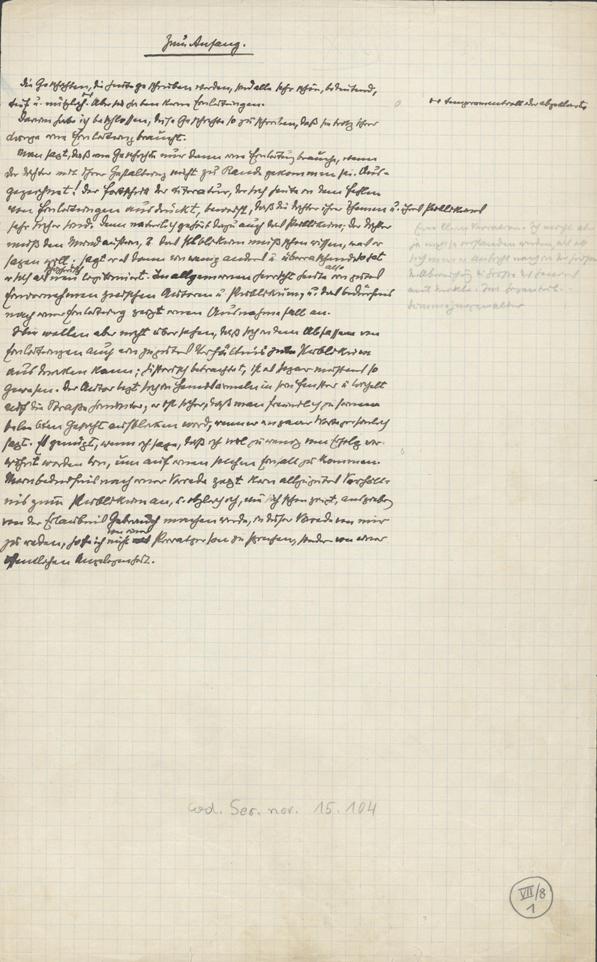 Zum Anfang.
Die Geschichten, die heute geschrieben werden, sind alle sehr schön, bedeutend,
tief u. nützlich. Aber sie haben keine Einleitungen.
Darum habe ich beschlossen, diese Geschichte so zu schreiben, daß sie trotz ihrer
eine Einleitung braucht.
Man sagt, daß eine Geschichte nur dann eine Einleitung brauche, wenn
der Dichter mit ihrer Gestaltung nicht zu Rande gekommen sei. Aus-
gezeichnet! Der Fortschritt der Literatur, der sich heute in dem Fehlen
von Einleitungen ausdrückt, beweist, daß die Dichter ihrer Themen u. ihres Publikums
sehr sicher sind. Denn natürlich gehört dazu auch das Publikum; der Dichter
muß den Mund auftun, u. das Publikum muß schon wissen, was er
sagen will; sagt er es dann ein wenig anders u. überraschend, so hat
er sich als legitimiert. Im allgemeinen herrscht heute also ein gutes
Einvernehmen zwischen Autoren u. Publikum, u. das Bedürfnis
nach einer Einleitung zeigt einen Ausnahmefall an.
wollen aber nicht übersehen, daß sich in dem Abfassen von
Einleitungen auch ein zu gutes Verhältnis zum Publikum
ausdrücken kann; historisch betrachtet, ist es sogar meistens so
gewesen. Der Autor legt sich in Hemdärmeln in sein Fenster u. lächelt
auf die Straße hinunter, er ist sicher, daß man freundlich zu seinem
beliebten Gesicht aufblicken wird, wenn er ein paar Worte persönlich
sagt. Es genügt, wenn ich sage, daß ich viel zu wenig vom Erfolg ver-
wöhnt worden bin, um auf einen solchen Einfall zu kommen.
Mein Bedürfnis nach einer Vorrede zeigt kein allzugutes Verhält-
nis zum Publikum an, u. obgleich ich, wie sich schon zeigt, ausgiebig
von der Erlaubnis Gebrauch machen werde, in dieser Vorrede von mir
zu reden, hoffe ich nicht von einer Privatperson zu sprechen, sondern von einer
öffentlichen Angelegenheit.
Cod. Ser. nov. 15.104
VII/8
1